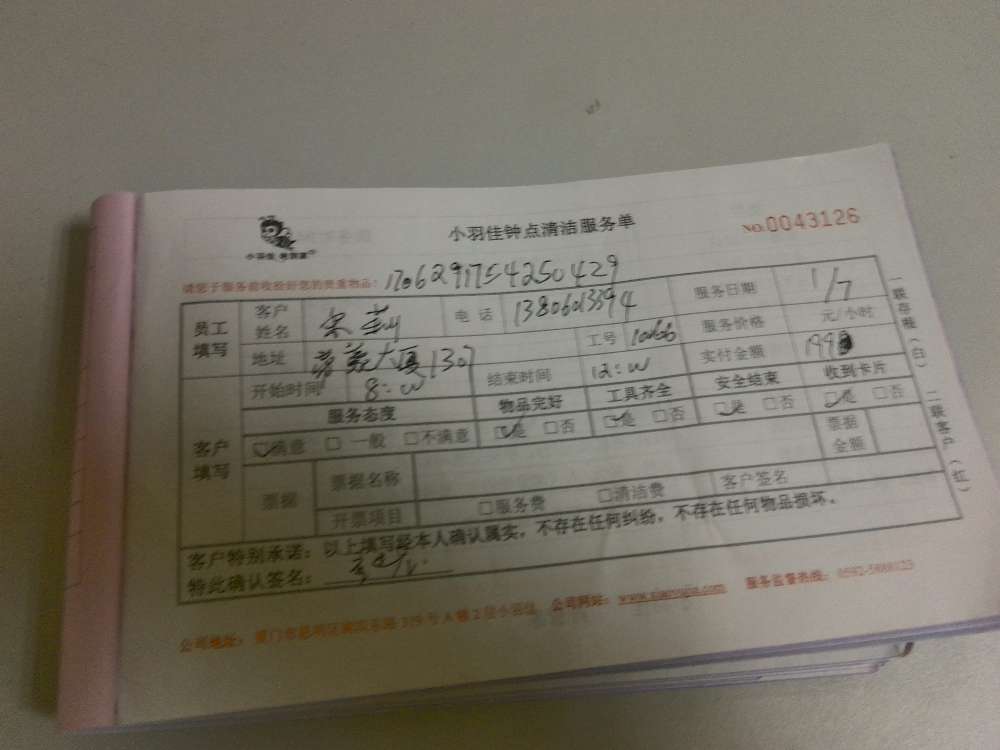 小羽佳钟点清洁服务单
NO.0043126
小羽佳
请您于服务前收拾好您的贵重物品: 170629175425 0429
员工填写 客户姓名 电话 13806013394 服务日期 1/7
地址 大厦1307 工号 服务价格 元/小时
开始时间 8:00 结束时间 12:00 实付金额
客户填写 服务态度 物品完好 工具齐全 安全结束 收到卡片
☑满意 □一般 □不满意 ☑是 □否 ☑是 □否 ☑是 □否 ☑是 □否
票据 票据名称 票据金额
开票项目 □服务费 □清洁费 客户签名
客户特别承诺: 以上填写经本人确认属实, 不存在任何纠纷, 不存在任何物品损坏。
特此确认签名:
一联存根(白) 二联客户(红)
公司地址: 公司网站: 服务监督热线: